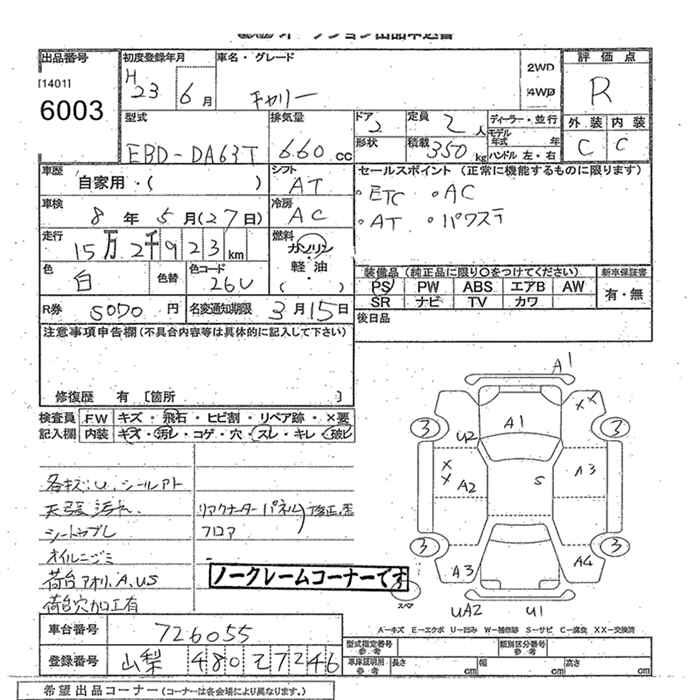 オークション出品申込書
出品番号 初度登録年月 車名・グレード 評価点
[1401] H 2WD
6003 23 6月 キャリー 4WD R
型式 排気量 ドア 2 定員 2人 ディーラー・並行 外装 内装
EBD-DA63T 660cc 形状 積載 350kg モデル年式 年 ハンドル 左・右 C C
車歴 自家用・( ) シフト AT セールスポイント (正常に機能するものに限ります)
車検 8年5月(27日) 冷房 AC 。ETC 。AC
。AT 。パワステ
走行 15万2千923km 燃料 ガソリン・軽油
色 白 色替 色コード 26U ( )
装備品 (純正品に限り○をつけてください) 新車保証書
PS PW ABS エアB AW 有・無
SR ナビ TV カワ
R券 5070円 名変通知期限 3月15日 後日品
注意事項申告欄 (不具合内容等は具体的に記入して下さい)
修復歴 有 [箇所 ]
検査員 FW キズ・飛石・ヒビ割・リペア跡・×要
記入欄 内装 キズ・汚れ・コゲ・穴・スレ・キレ・破レ
各キズ・U、シールアト
天張汚れ リアクォーターパネル 修正・歪
シートウブレ フロア
オイルニジミ
荷台アオリ、A、US ノークレームコーナーです
荷台穴加工有
A1
A1
3 U2 3
A2 S A3
3 3
A3 A4
スペア UA2 U1
A-キズ E-エクボ U-凹み W-補修跡 S-サビ C-腐食 XX-交換済
車台番号 726055 型式指定番号 参考 類別区分番号 参考
登録番号 山梨 480 て 7246 車庫証明用 参考 長さ cm 幅 cm 高さ cm
希望出品コーナー (コーナーは各会場により異なります。)